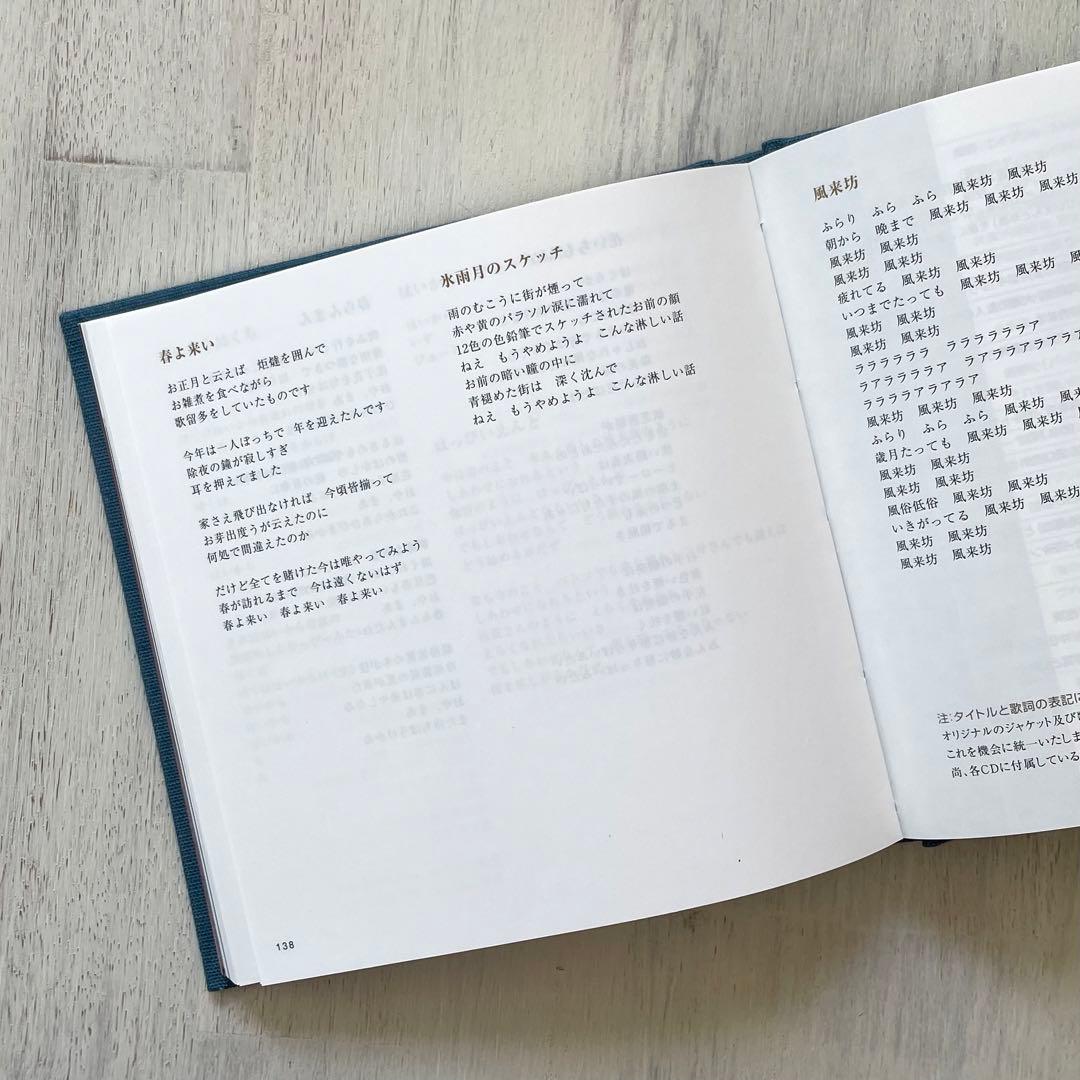 春よ来い
お正月と云えば　炬燵を囲んで
お雑煮を食べながら
歌留多をしていたものです
今年は一人ぼっちで　年を迎えたんです
除夜の鐘が寂しすぎ
耳を押えてました
家さえ飛び出なければ　今頃皆揃って
お芽出度うが云えたのに
何処で間違えたのか
だけど全てを賭けた今は唯やってみよう
春が訪れるまで　今は遠くないはず
春よ来い　春よ来い　春よ来い
氷雨月のスケッチ
雨のむこうに街が煙って
赤や黄のパラソル涙に濡れて
12色の色鉛筆でスケッチされたお前の顔
ねえ　もうやめようよ　こんな淋しい話
お前の暗い瞳の中に
青褪めた街は　深く沈んで
ねえ　もうやめようよ　こんな淋しい話
138
風来坊
ふらり　ふら　ふら　風来坊　風来坊
朝から　晩まで　風来坊　風来坊　風来坊
風来坊　風来坊
風来坊　風来坊
疲れてる　風来坊　風来坊
いつまでたっても　風来坊　風来坊　風
風来坊　風来坊
風来坊　風来坊
ラララララララ　ララララララア
ラアラララララア　ラアララアラアララア
ララララアラアラアア
風来坊　風来坊　風来坊
ふらり　ふら　ふら　風来坊　風来坊
歳月たっても　風来坊　風来坊　風
風来坊　風来坊
風来坊　風来坊
風俗低俗　風来坊　風来坊
いきがってる　風来坊　風来坊
風来坊　風来坊
風来坊　風来坊
注:タイトルと歌詞の表記に
オリジナルのジャケット及び
これを機会に統一いたしま
尚、各CDに付属している